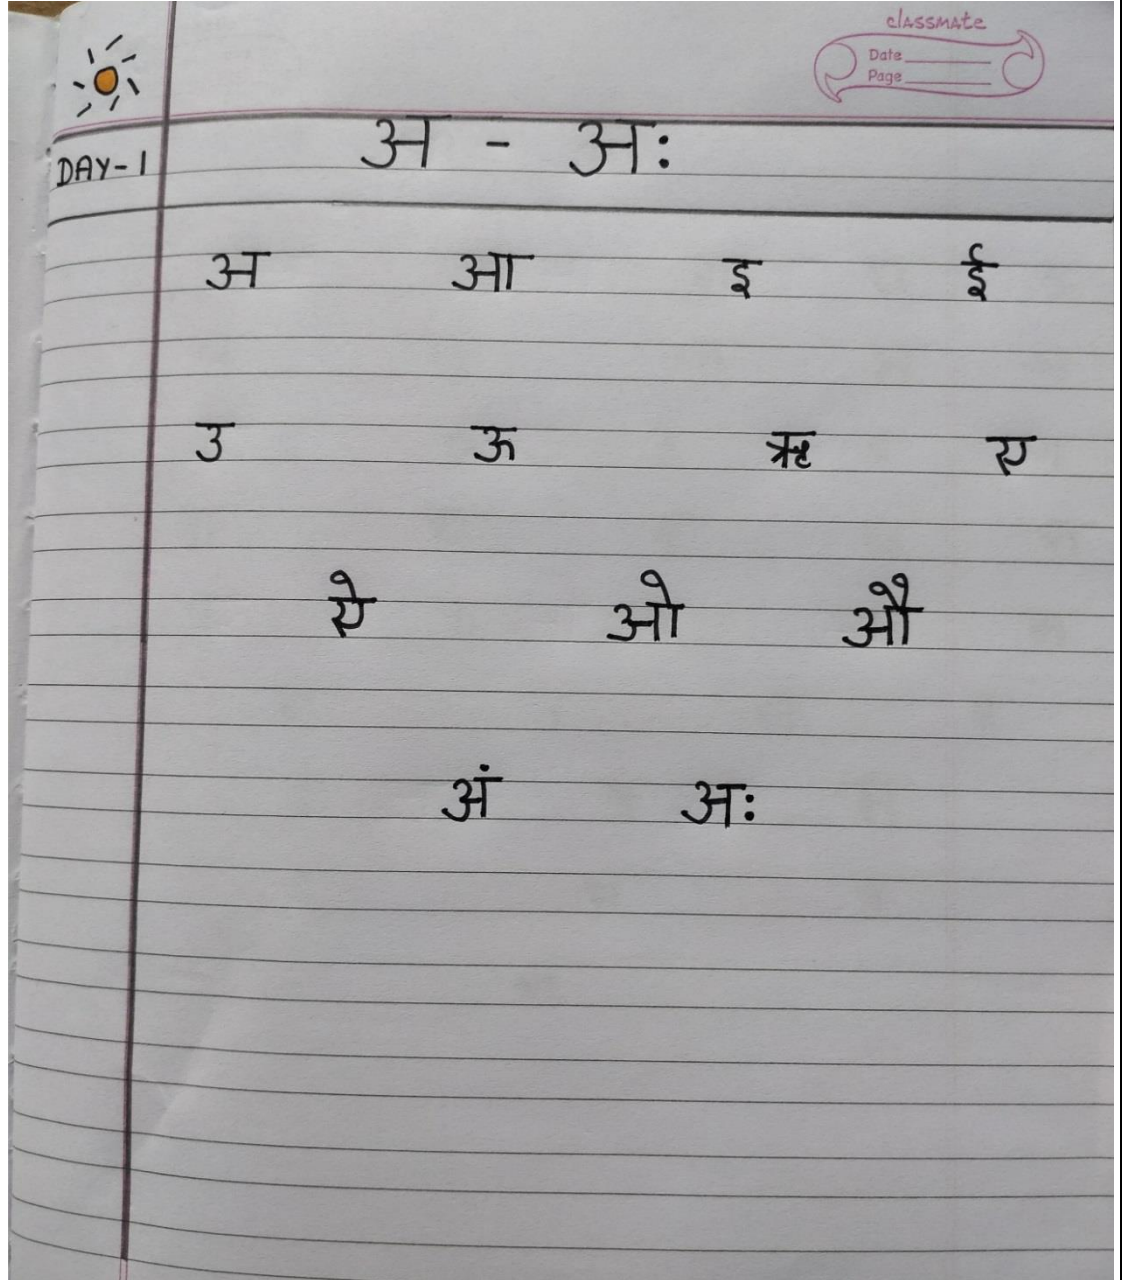 classmate
Date
Page
DAY-1 अ - अः
अ आ इ ई
उ ऊ ऋ ए
ऐ ओ औ
अं अः